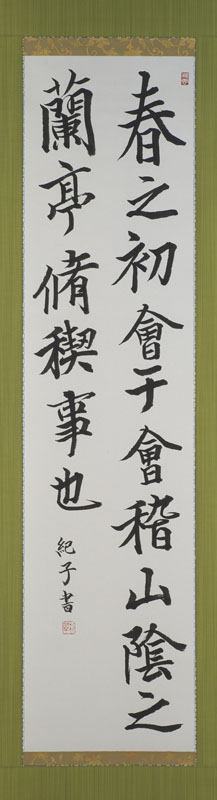 春之初會于會稽山陰之
蘭亭脩禊事也
紀子書